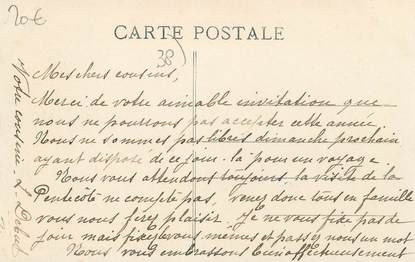 20€
CARTE POSTALE
38)
Mes chers cousins,
Merci de votre aimable invitation que
nous ne pourrons pas accepter cette année
Nous ne sommes pas libres dimanche prochain
ayant disposé de ce jour-là pour un voyage.
Nous vous attendons toujours, la visite de la
Pentecôte ne compte pas, venez donc tous en famille
vous nous ferez plaisir. Je ne vous fixe pas de
jour mais fixez vous mêmes et passez nous un mot
Nous vous embrassons bien affectueusement
Votre cousine L.